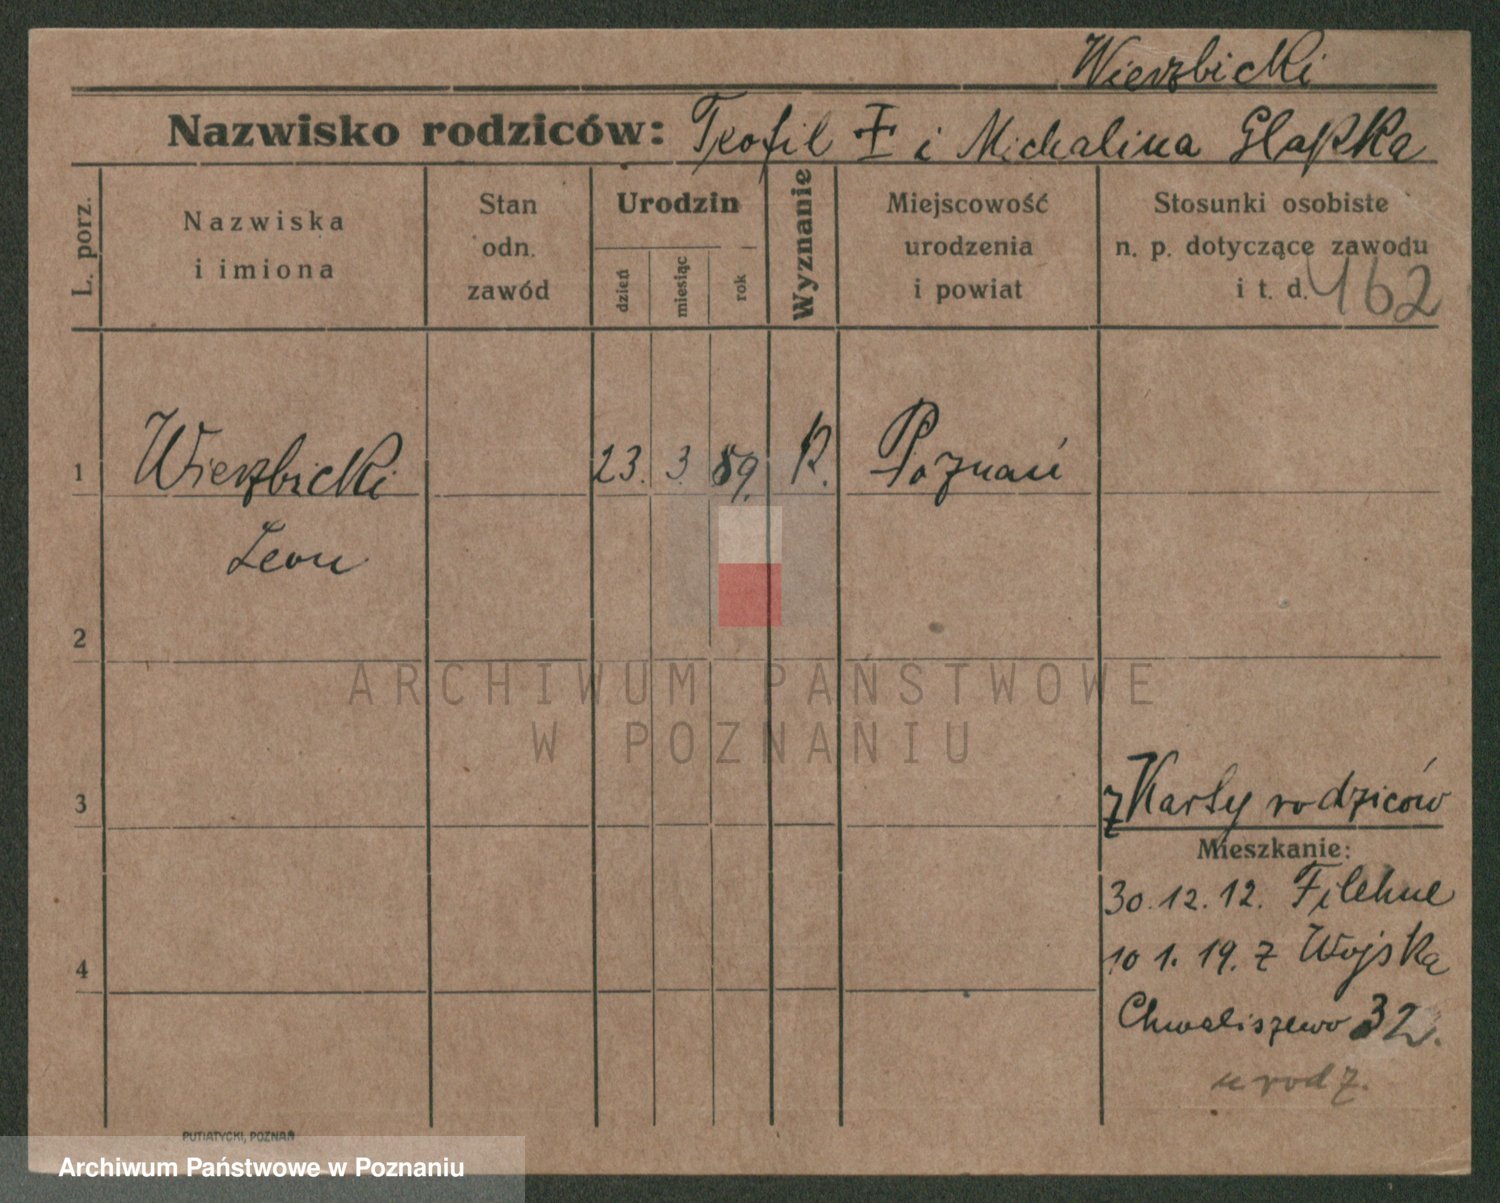 Wierzbicki
Nazwisko rodziców: Teofil i Michalina Glapka
L. porz.
Nazwiska
i imiona
Stan
odn.
zawód
Urodzin
dzień
miesiąc
rok
Wyznanie
Miejscowość
urodzenia
i powiat
Stosunki osobiste
n. p. dotyczące zawodu
i t. d.
462
1
Wierzbicki
23. 3. 89.
Poznań
Leon
2
ARCHIWUM PAŃSTWOWE
W POZNANIU
3
z Karty rodziców
Mieszkanie:
30.12.12. Filehne
4
10 1. 19. z Wojska
Chwaliszewo 32.
urodz.
PUTIATYCKI, POZNAŃ
Archiwum Państwowe w Poznaniu